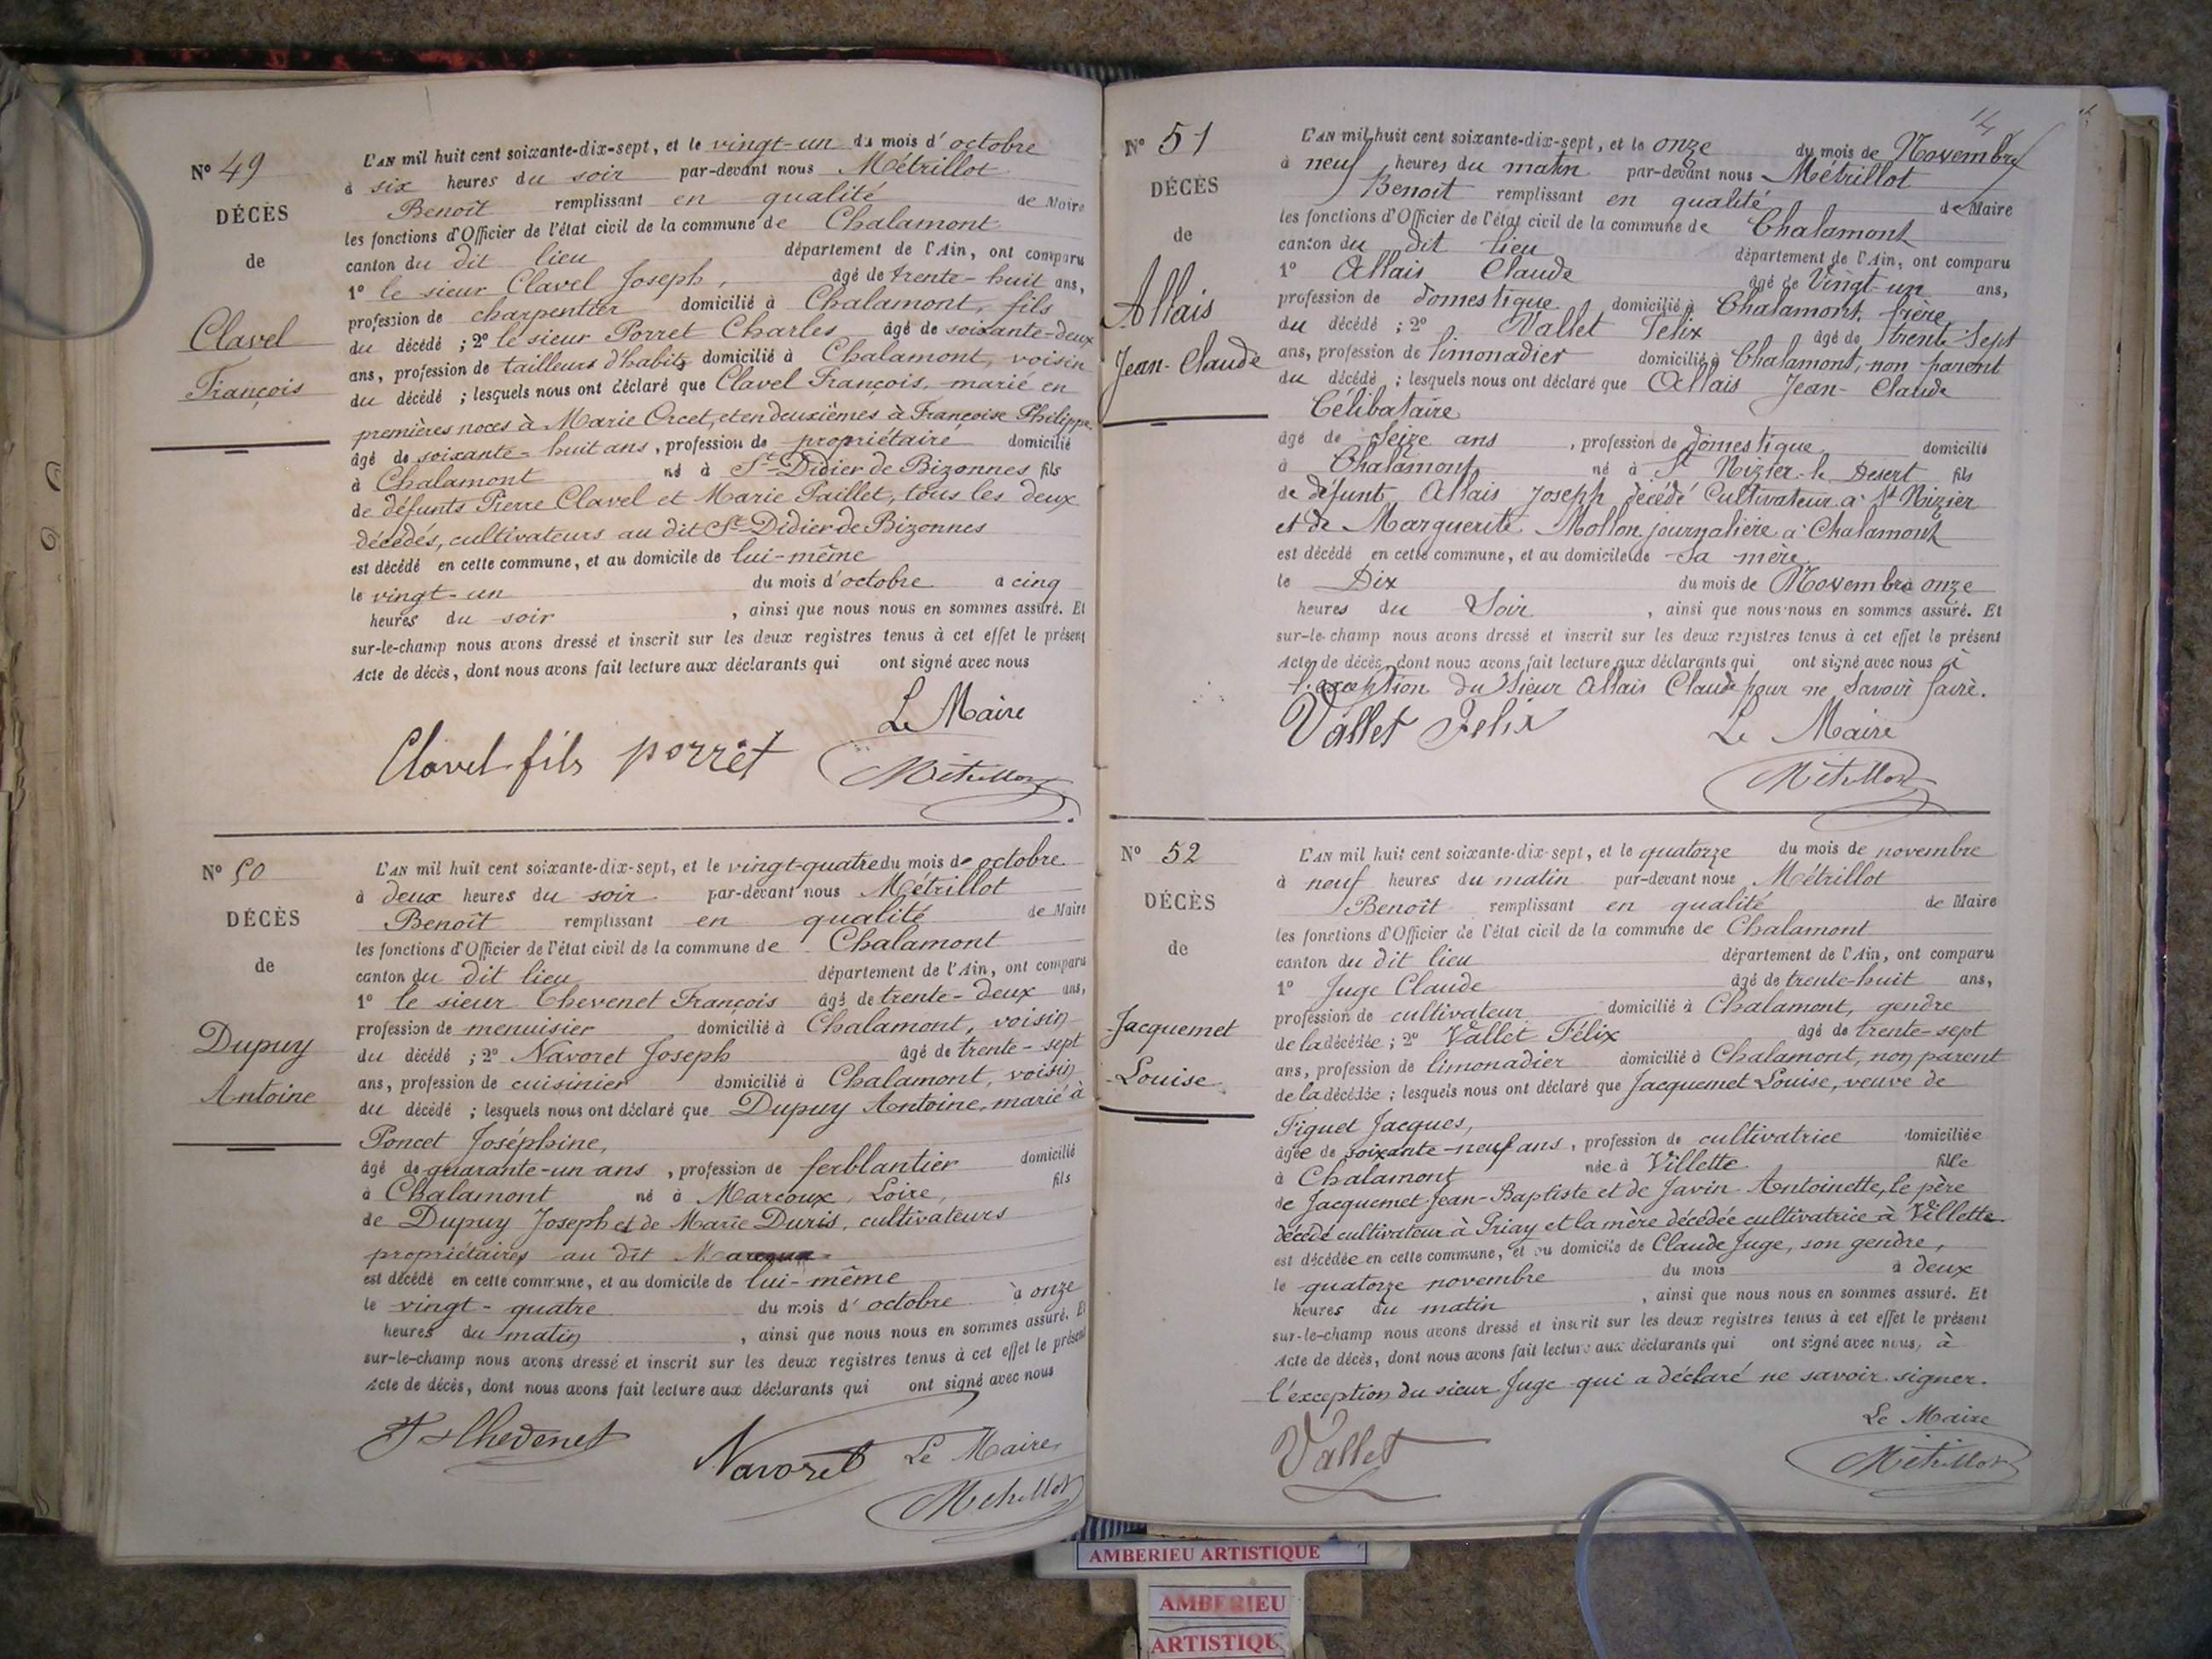 Nº 49
DÉCÈS
de
Clavel
François
L'AN mil huit cent soixante-dix-sept, et le vingt-un du mois d'octobre
à six heures du soir par-devant nous Métrillot
Benoît remplissant en qualité de Maire
les fonctions d'Officier de l'état civil de la commune de Chalamont
canton du dit lieu département de l'Ain, ont comparu
1º le sieur Clavel Joseph, âgé de trente-huit ans,
profession de charpentier domicilié à Chalamont, fils
du décédé ; 2º le sieur Porret Charles âgé de soixante-deux
ans, profession de tailleurs d'habits domicilié à Chalamont, voisin
du décédé ; lesquels nous ont déclaré que Clavel François, marié en
premières noces à Marie Orcet, et en deuxièmes à Françoise Philippe
âgé de soixante-huit ans, profession de propriétaire domicilié
à Chalamont né à St-Didier de Bizonnes fils
de défunts Pierre Clavel et Marie Paillet, tous les deux
décédés, cultivateurs au dit St-Didier de Bizonnes
est décédé en cette commune, et au domicile de lui-même
le vingt-un du mois d'octobre à cinq
heures du soir, ainsi que nous nous en sommes assuré. Et
sur-le-champ nous avons dressé et inscrit sur les deux registres tenus à cet effet le présent
Acte de décès, dont nous avons fait lecture aux déclarants qui ont signé avec nous
Le Maire
Clavel fils porret Métrillot
Nº 50
DÉCÈS
de
Dupuy
Antoine
L'AN mil huit cent soixante-dix-sept, et le vingt-quatre du mois de octobre
à deux heures du soir par-devant nous Métrillot
Benoît remplissant en qualité de Maire
les fonctions d'Officier de l'état civil de la commune de Chalamont
canton du dit lieu département de l'Ain, ont comparu
1º le sieur Chevenet François âgé de trente-deux ans,
profession de menuisier domicilié à Chalamont, voisin
du décédé ; 2º Navoret Joseph âgé de trente-sept
ans, profession de cuisinier domicilié à Chalamont, voisin
du décédé ; lesquels nous ont déclaré que Dupuy Antoine, marié à
Poncet Joséphine,
âgé de quarante-un ans, profession de ferblantier domicilié
à Chalamont né à Marcoux, Loire, fils
de Dupuy Joseph et de Marie Duris, cultivateurs
propriétaires au dit Marcoux
est décédé en cette commune, et au domicile de lui-même
le vingt-quatre du mois d'octobre à onze
heures du matin, ainsi que nous nous en sommes assuré. Et
sur-le-champ nous avons dressé et inscrit sur les deux registres tenus à cet effet le présent
Acte de décès, dont nous avons fait lecture aux déclarants qui ont signé avec nous
Chevenet Navoret Le Maire,
Métrillot
Nº 51
DÉCÈS
de
Allais
Jean-Claude
L'AN mil huit cent soixante-dix-sept, et le onze du mois de Novembre
à neuf heures du matin par-devant nous Métrillot
Benoit remplissant en qualité de Maire
les fonctions d'Officier de l'état civil de la commune de Chalamont
canton du dit lieu département de l'Ain, ont comparu
1º Allais Claude âgé de Vingt-un ans,
profession de domestique domicilié à Chalamont, frère
du décédé ; 2º Vallet Felix âgé de trente-Sept
ans, profession de limonadier domicilié à Chalamont, non parent
du décédé ; lesquels nous ont déclaré que Allais Jean-Claude
Célibataire
âgé de Seize ans, profession de domestique domicilié
à Chalamont né à St Nizier-le Desert fils
de défunt Allais Joseph décédé Cultivateur à St Nizier
et de Marguerite Mollon journalière à Chalamont
est décédé en cette commune, et au domicile de Sa mère
le Dix du mois de Novembre onze
heures du Soir, ainsi que nous nous en sommes assuré. Et
sur-le-champ nous avons dressé et inscrit sur les deux registres tenus à cet effet le présent
Acte de décès, dont nous avons fait lecture aux déclarants qui ont signé avec nous à
l'exception du Sieur Allais Claude pour ne Savoir faire.
Vallet Felix Le Maire
Métrillot
Nº 52
DÉCÈS
de
Jacquemet
Louise
L'AN mil huit cent soixante-dix-sept, et le quatorze du mois de novembre
à neuf heures du matin par-devant nous Métrillot
Benoît remplissant en qualité de Maire
les fonctions d'Officier de l'état civil de la commune de Chalamont
canton du dit lieu département de l'Ain, ont comparu
1º Juge Claude âgé de trente-huit ans,
profession de cultivateur domicilié à Chalamont, gendre
de la décédée ; 2º Vallet Félix âgé de trente-sept
ans, profession de limonadier domicilié à Chalamont, non parent
de la décédée ; lesquels nous ont déclaré que Jacquemet Louise, veuve de
Figuet Jacques,
âgée de soixante-neuf ans, profession de cultivatrice domiciliée
à Chalamont née à Villette fille
de Jacquemet Jean-Baptiste et de Javin Antoinette, le père
décédé cultivateur à Priay et la mère décédée cultivatrice à Villette
est décédée en cette commune, et au domicile de Claude Juge, son gendre,
le quatorze novembre du mois à deux
heures du matin, ainsi que nous nous en sommes assuré. Et
sur-le-champ nous avons dressé et inscrit sur les deux registres tenus à cet effet le présent
Acte de décès, dont nous avons fait lecture aux déclarants qui ont signé avec nous, à
l'exception du sieur Juge qui a déclaré ne savoir signer.
Le Maire
Vallet Métrillot
AMBERIEU ARTISTIQUE
AMBERIEU
ARTISTIQUE